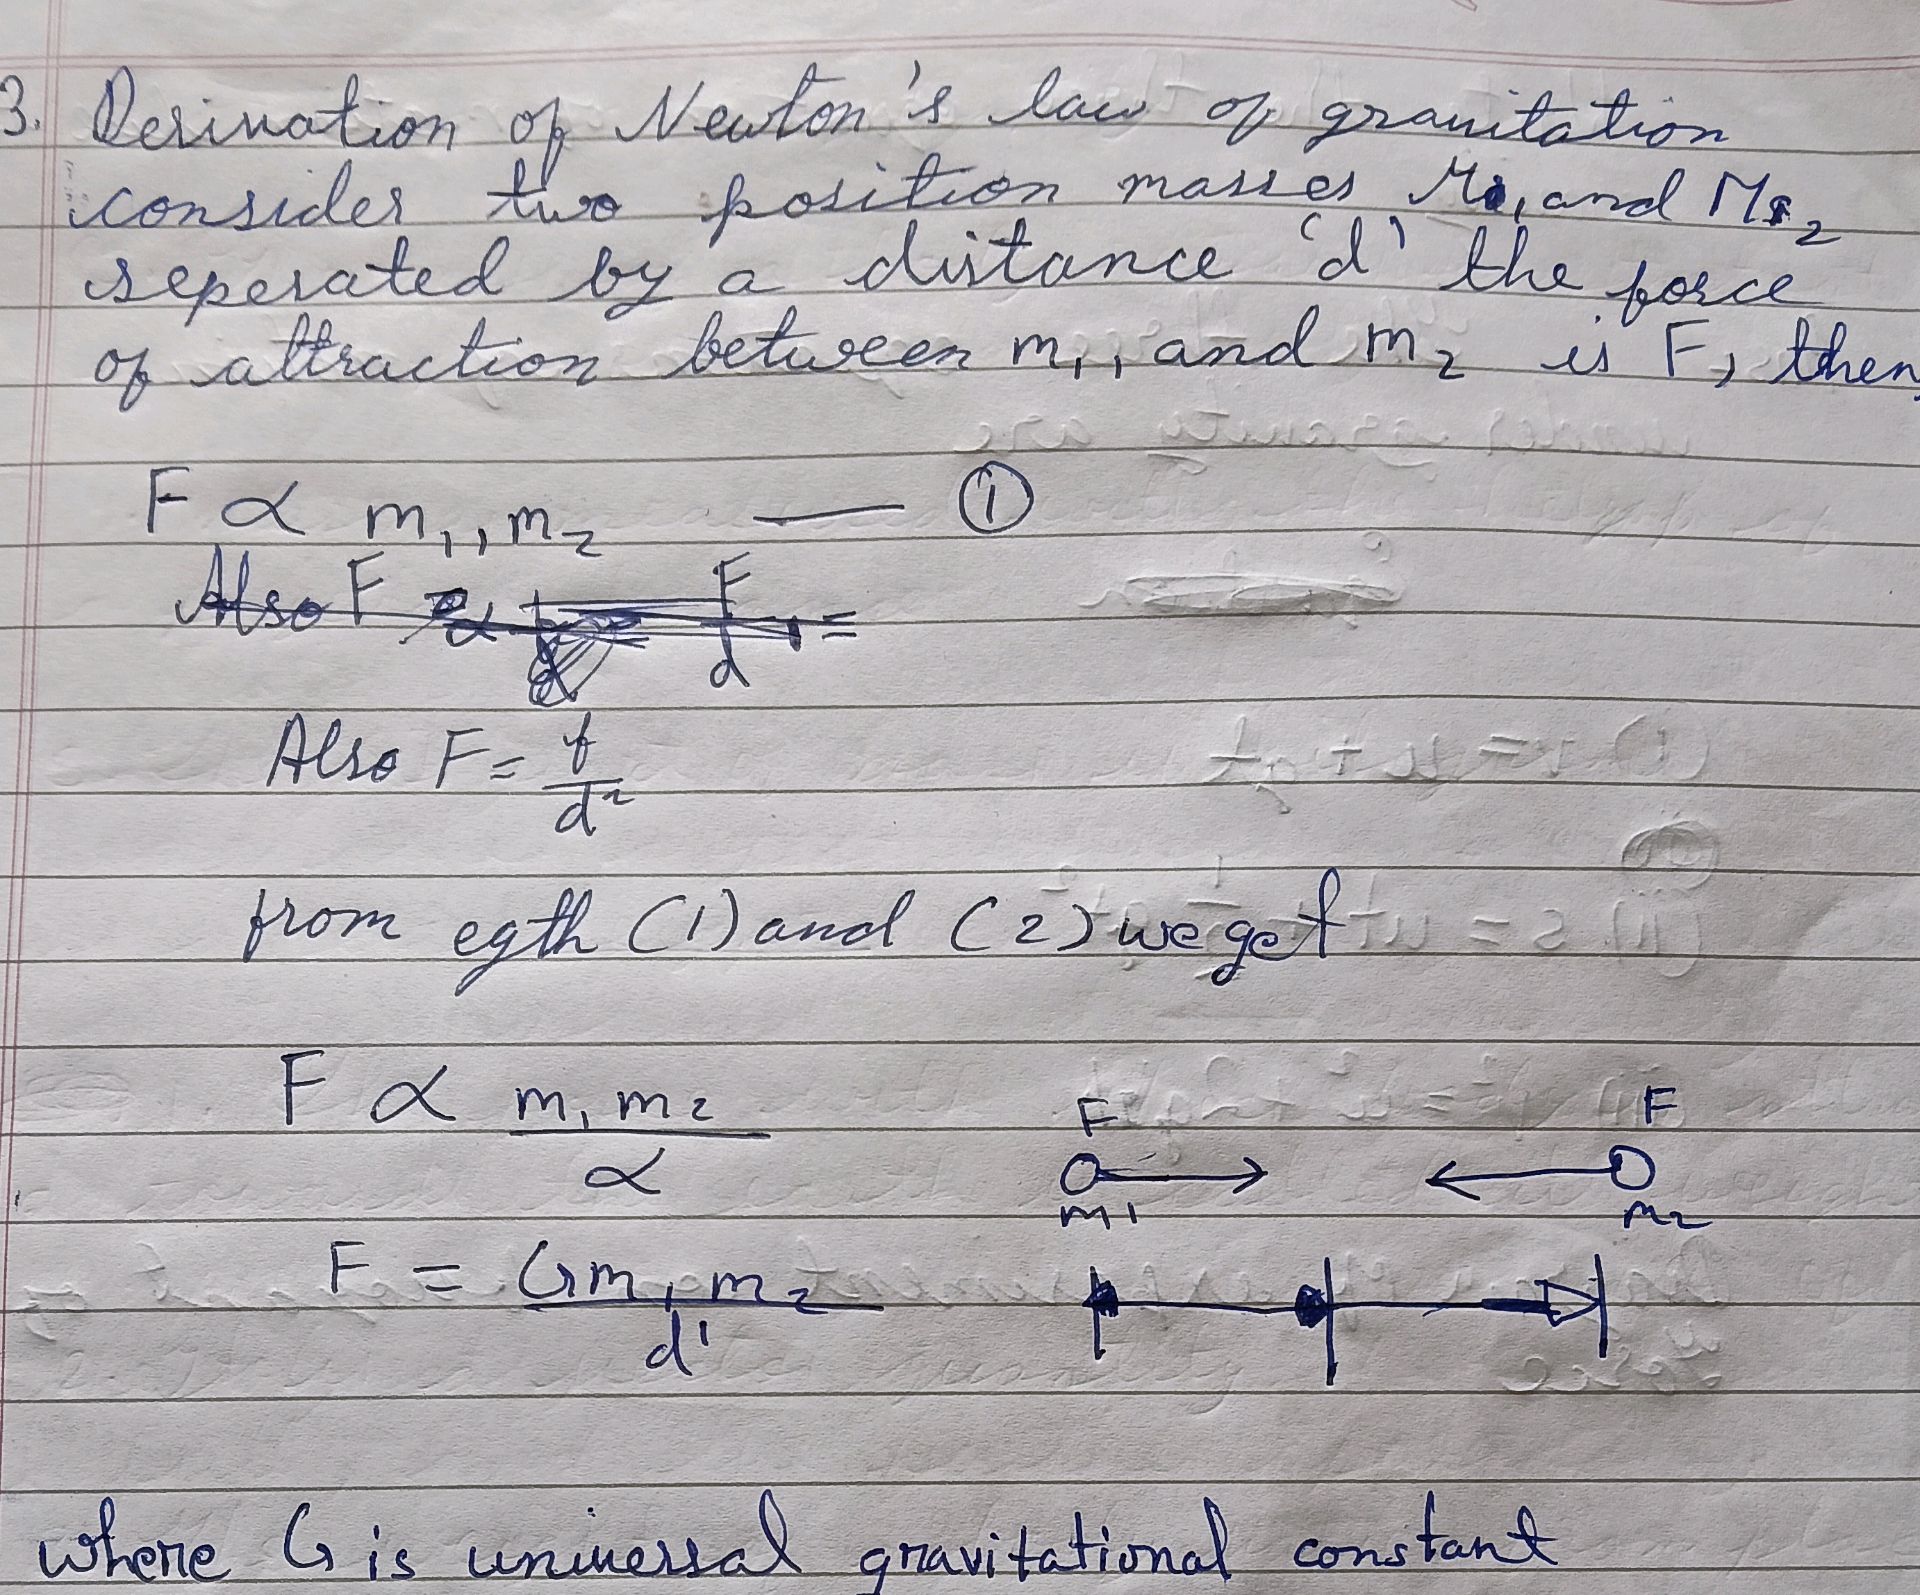 3. Derivation of Newton's law of gravitation
consider two position masses M1, and M2
seperated by a distance 'd' the force
of attraction between m1, and m2 is F, then,
F ∝ m1, m2 — ①
Also F
F/d =
Also F = f/d²
from eqth (1) and (2) we get
F ∝ m1 m2/α
F F
m1 m2
F = G m1 m2/d'
where G is universal gravitational constant